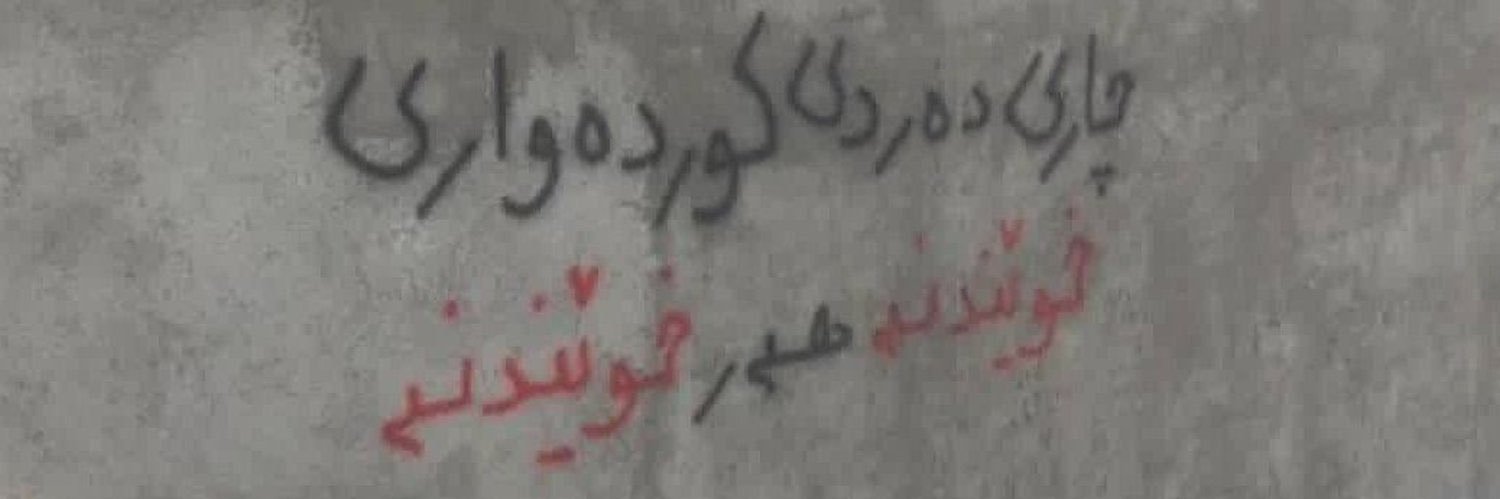 چاری دەردی کوردەواری
خوێندنە هەر خوێندنە